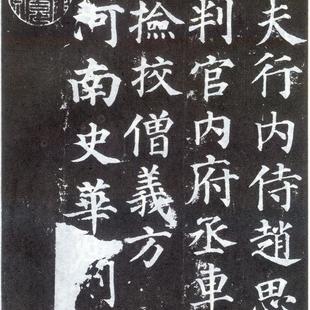 夫行内侍趙思
判官内府丞車
撿挍僧義方
河南史華刻